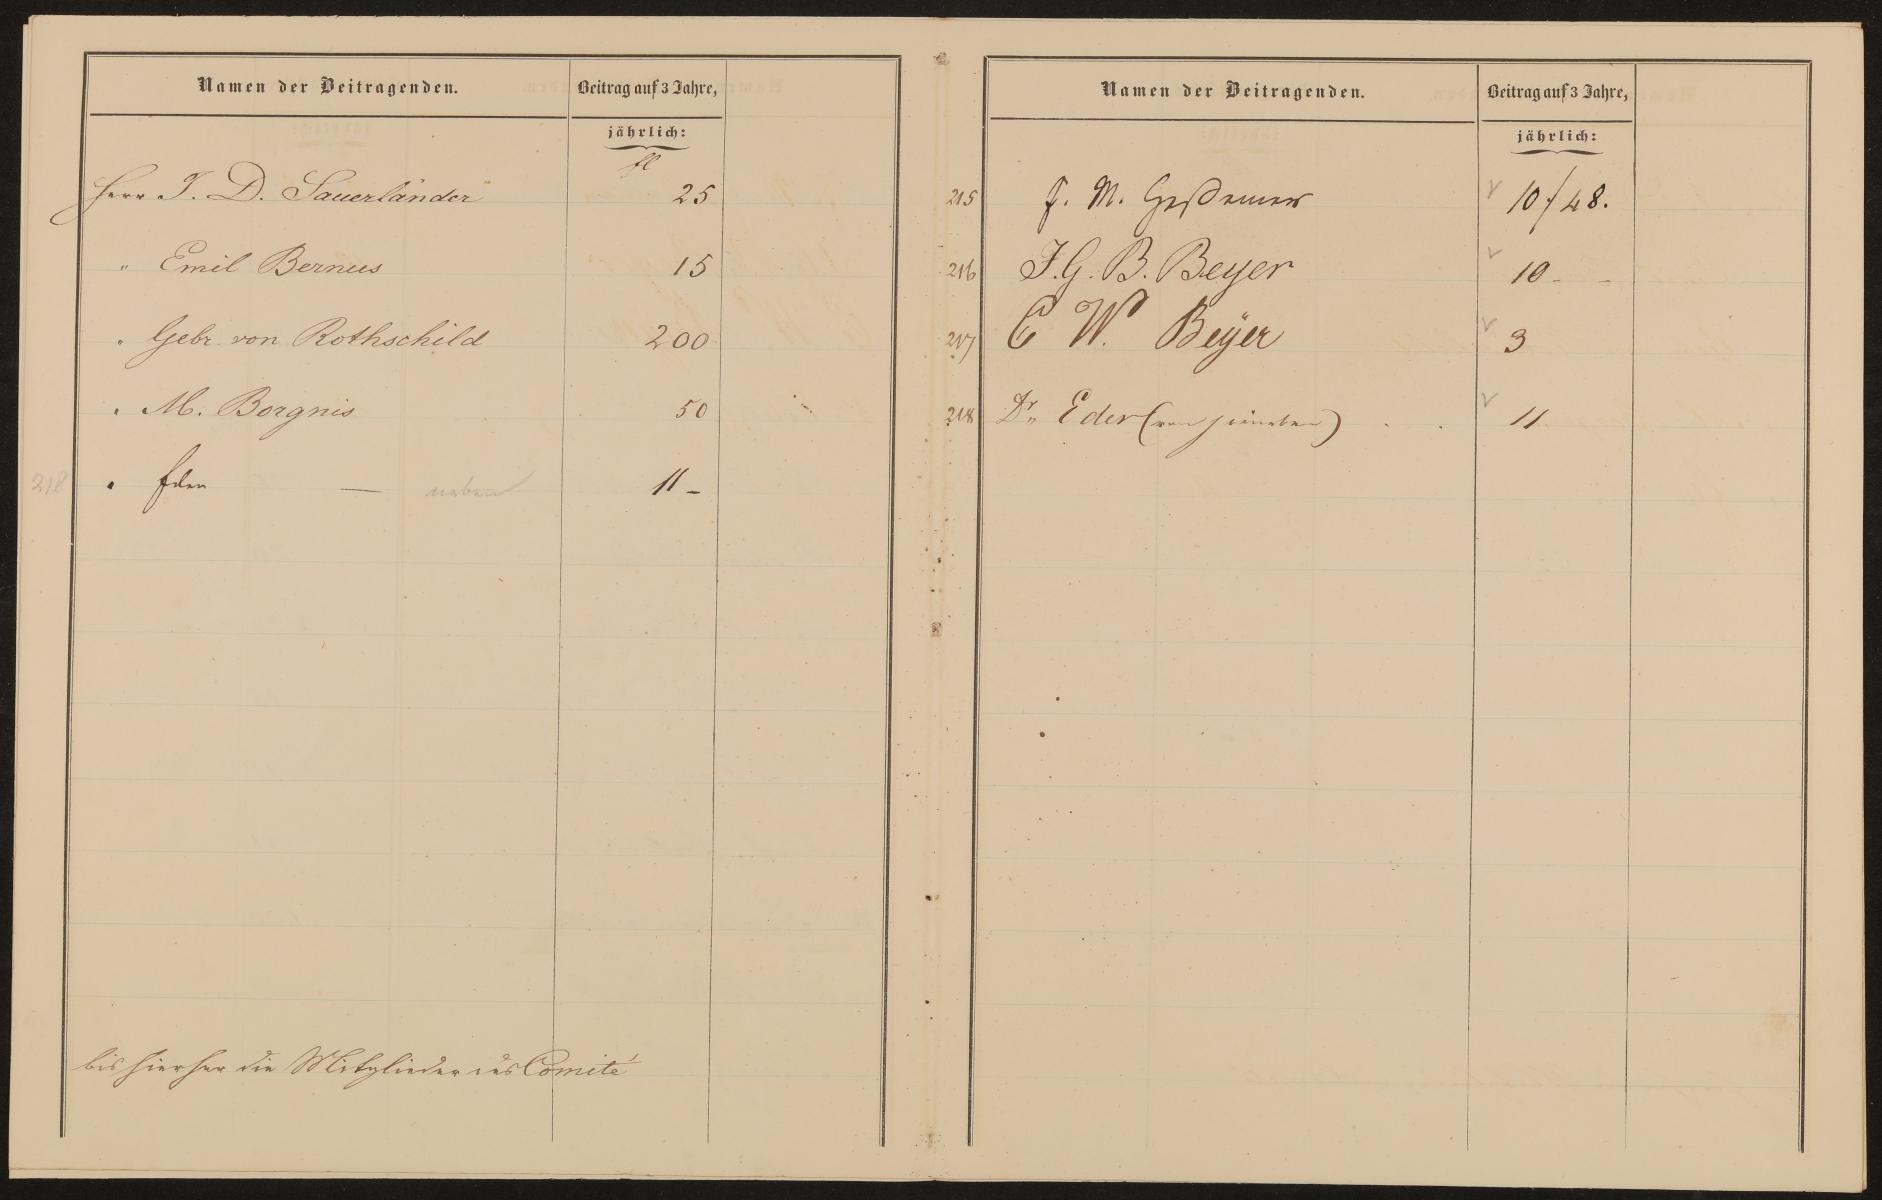 Namen der Beitragenden.
Beitrag auf 3 Jahre,
jährlich:
fl
Herr J. D. Sauerländer 25
" Emil Bernus 15
" Gebr. von Rothschild 200
" M. Borgnis 50
218 " Eder — neben 11 –
bis hierher die Mitglieder des Comité
Namen der Beitragenden.
Beitrag auf 3 Jahre,
jährlich:
215 F. M. Heßemer 10 f 48.
216 J. G. B. Beyer 10 - -
217 C W. Beÿer 3
218 Dr. Eder 11